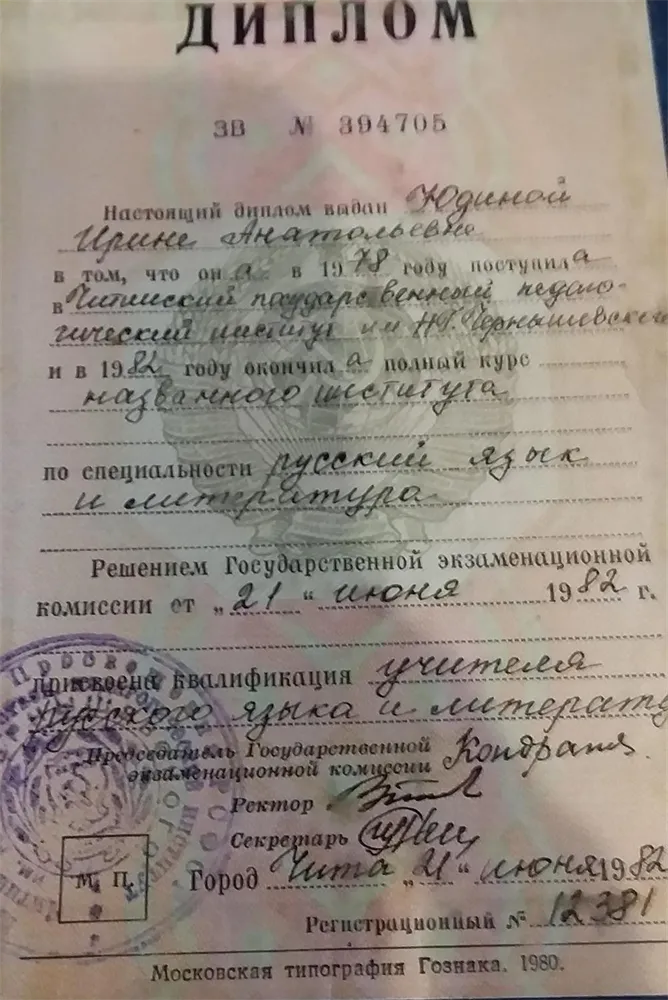 ДИПЛОМ
ЗВ № 394705
Настоящий диплом выдан Юдиной
Ирине Анатольевне
в том, что он а в 1978 году поступила
в Читинский государственный педаго-
гический институт им Н.Г. Чернышевского
и в 1982 году окончил а полный курс
названного института
по специальности русский язык
и литература
Решением Государственной экзаменационной
комиссии от „21“ июня 1982 г.
присвоена квалификация учителя
русского языка и литерату
Председатель Государственной
экзаменационной комиссии
Ректор
Секретарь
М. П. Город Чита „21“ июня 1982
Регистрационный № 12381
Московская типография Гознака. 1980.